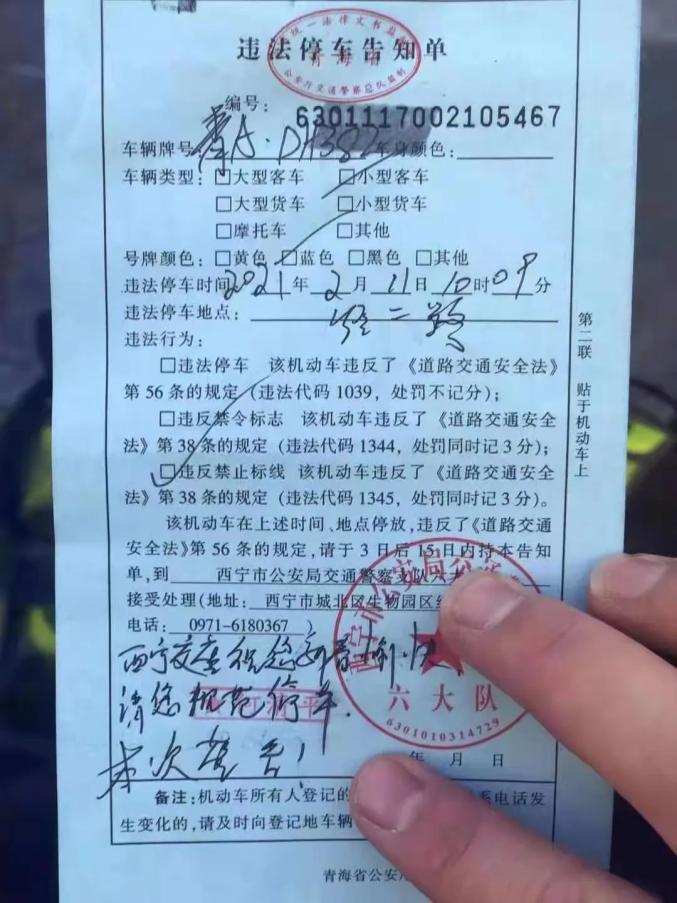 违法停车告知单
统一法律文书监制
青海省
公安厅交通警察总队监制
编号：
6301117002105467
车辆牌号 青A·DH387 车身颜色：
车辆类型：□大型客车 □小型客车
□大型货车 □小型货车
□摩托车 □其他
号牌颜色：□黄色 □蓝色 □黑色 □其他
违法停车时间 2021年2月11日10时09分
违法停车地点： 经二路
违法行为：
□违法停车 该机动车违反了《道路交通安全法》
第56条的规定（违法代码1039，处罚不记分）；
□违反禁令标志 该机动车违反了《道路交通安全
法》第38条的规定（违法代码1344，处罚同时记3分）；
□违反禁止标线 该机动车违反了《道路交通安全
法》第38条的规定（违法代码1345，处罚同时记3分）。
该机动车在上述时间、地点停放，违反了《道路交通
安全法》第56条的规定，请于3日后15日内持本告知
单，到 西宁市公安局交通警察支队
接受处理（地址： 西宁市城北区生物园区经
电话： 0971-6180367 ）
西宁交警祝您新春愉快
请您规范停车.
本次警告！
六大队
6301010314729
年 月 日
备注：机动车所有人登记的 系电话发
生变化的，请及时向登记地车辆
青海省公安厅
第二联 贴于机动车上